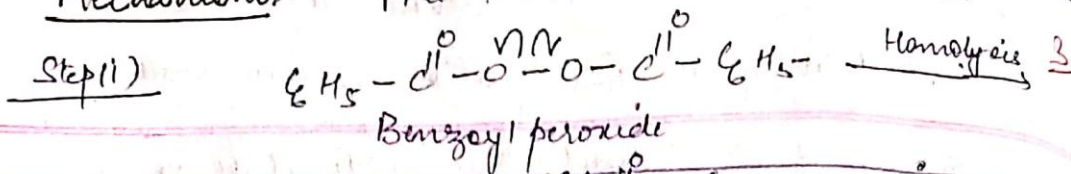 Step(i) C6H5-C(=O)-O-O-C(=O)-C6H5- Homolysis 3
Benzoyl peroxide